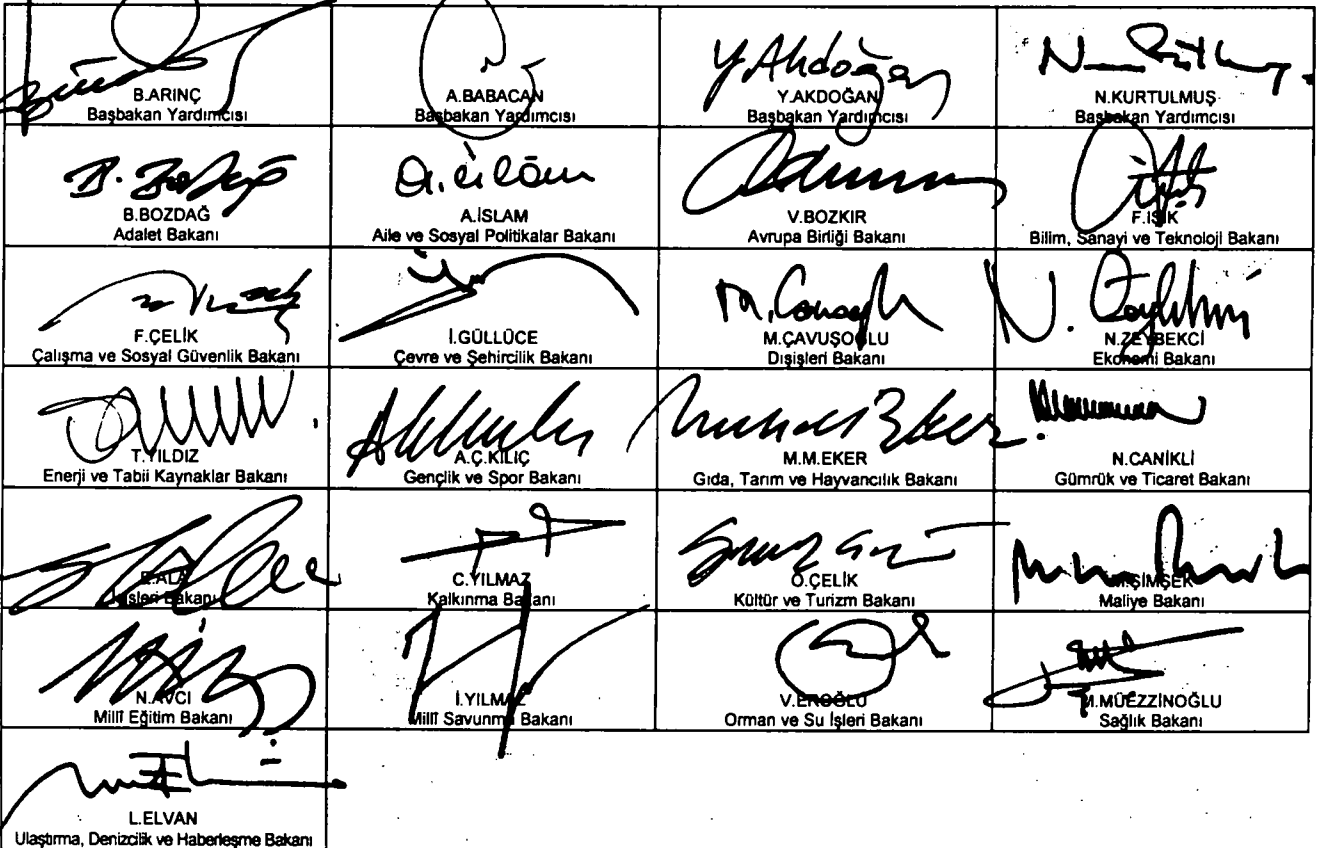 B.ARINÇ
Başbakan Yardımcısı
A.BABACAN
Başbakan Yardımcısı
Y.Akdoğan
Y.AKDOĞAN
Başbakan Yardımcısı
N.KURTULMUŞ
Başbakan Yardımcısı
B.BOZDAĞ
Adalet Bakanı
A.İSLAM
Aile ve Sosyal Politikalar Bakanı
V.BOZKIR
Avrupa Birliği Bakanı
F.IŞIK
Bilim, Sanayi ve Teknoloji Bakanı
F.ÇELİK
Çalışma ve Sosyal Güvenlik Bakanı
İ.GÜLLÜCE
Çevre ve Şehircilik Bakanı
M.ÇAVUŞOĞLU
Dışişleri Bakanı
N.ZEYBEKCİ
Ekonomi Bakanı
T.YILDIZ
Enerji ve Tabii Kaynaklar Bakanı
A.Ç.KILIÇ
Gençlik ve Spor Bakanı
M.M.EKER
Gıda, Tarım ve Hayvancılık Bakanı
N.CANİKLİ
Gümrük ve Ticaret Bakanı
E.ALA
İçişleri Bakanı
C.YILMAZ
Kalkınma Bakanı
Ö.ÇELİK
Kültür ve Turizm Bakanı
M.ŞİMŞEK
Maliye Bakanı
N.AVCI
Millî Eğitim Bakanı
İ.YILMAZ
Millî Savunma Bakanı
V.EROĞLU
Orman ve Su İşleri Bakanı
M.MÜEZZİNOĞLU
Sağlık Bakanı
L.ELVAN
Ulaştırma, Denizcilik ve Haberleşme Bakanı